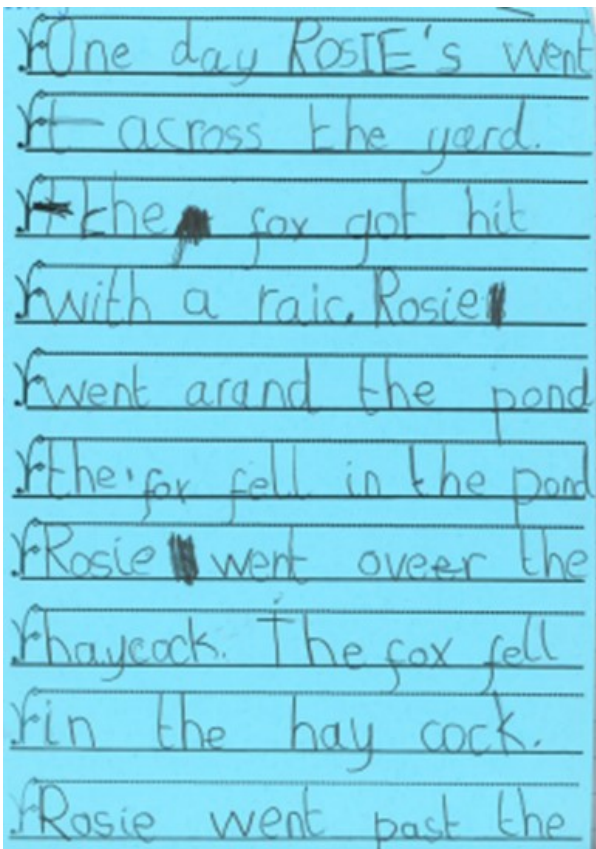 One day ROSIE's went
t across the yard.
the fox got hit
with a raic. Rosie
went arand the pond
the fox fell in the pond
Rosie went oveer the
haycock. The fox fell
in the hay cock.
Rosie went past the